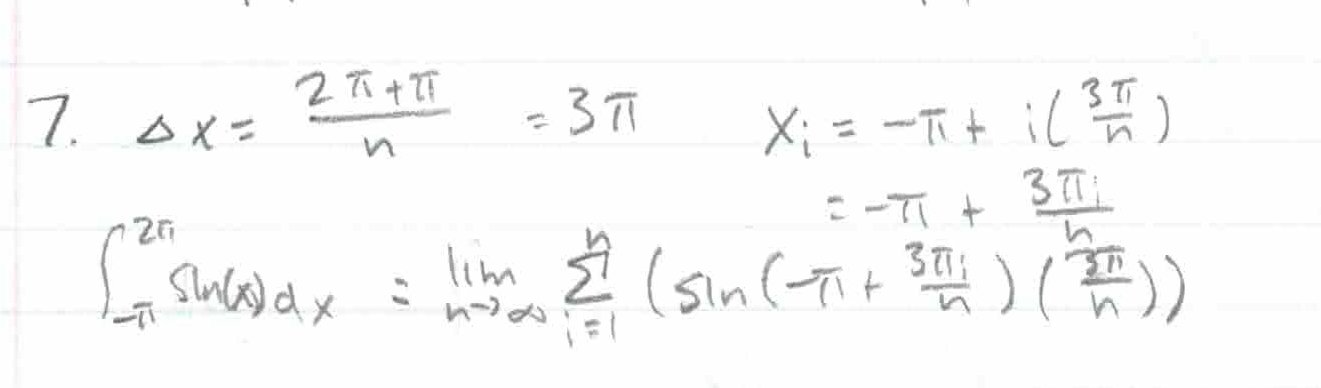 7. Δx = (2π+π)/n = 3π    xᵢ = -π + i(3π/n)
= -π + 3πi/n
∫_{-π}^{2π} sin(x)dx = lim_{n→∞} Σ_{i=1}^{n} (sin(-π + 3πi/n)(3π/n))